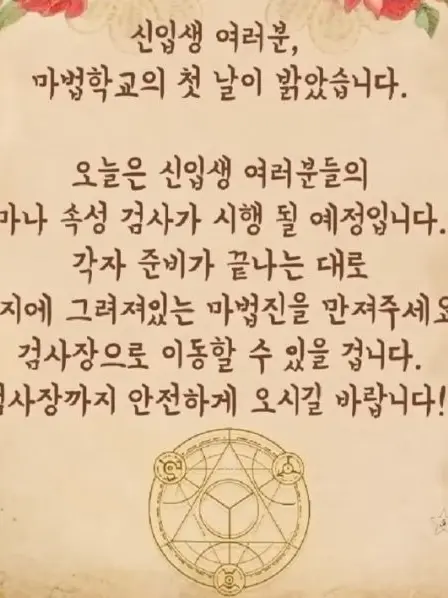 신입생 여러분,
마법학교의 첫 날이 밝았습니다.
오늘은 신입생 여러분들의
마나 속성 검사가 시행 될 예정입니다.
각자 준비가 끝나는 대로
지에 그려져있는 마법진을 만져주세요
검사장으로 이동할 수 있을 겁니다.
검사장까지 안전하게 오시길 바랍니다!